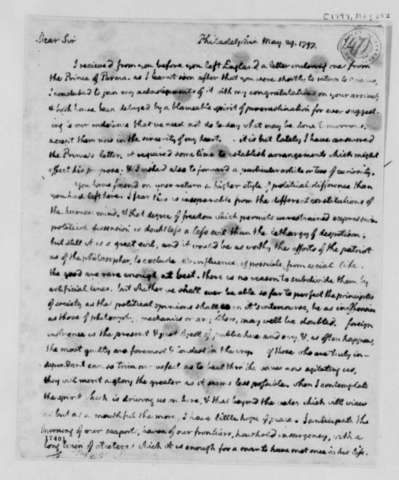 Dear Sir Philadelphia May 29. 1797.
I received from you before you left England a letter inclosing one from
the Prince of Parma. as I learnt soon after that you were shortly to return to America,
I concluded to join my acknolegements of it with my congratulations on your arrival;
& both have been delayed by a blameable spirit of procrastination for ever suggest-
ing to our indolence that we need not do to-day what may be done tomorrow.
accept them now in the sincerity of my heart. it is but lately I have answered
the Prince's letter. it required some time to establish arrangements which might
effect his purpose, & I wished also to forward a particular article or two of curiosity.
You have found on your return a higher style of political difference than
you had left here. I fear this is inseparable from the different constitutions of
the human mind, & that degree of freedom which permits unrestrained expression.
political dissension is doubtless a less evil than the lethargy of despotism:
but still it is a great evil, and it would be as worthy the efforts of the patriot
as of the philosopher, to exclude it's influence if possible, from social life.
the good are rare enough at best. there is no reason to subdivide them by
artificial lines. but whether we shall ever be able so far to perfect the principles
of society as that political opinions shall in it's intercourse, be as inoffensive
as those of philosophy, mechanics or any other, may well be doubted. foreign
influence is the present & just object of public hue and cry, &, as often happens,
the most guilty are foremost & loudest in the cry. if those who are truly in-
dependant can so trim our vessel as to beat thro' the waves now agitating us,
they will merit a glory the greater as it seems less possible. when I contemplate
the spirit which is driving us on here, & that beyond the water which will view
us but as a mouthful the more, I have little hope of peace. I anticipate the
burning of our seaports, havoc of our frontiers, houshold insurgency, with a
long train of et ceteras which it is enough for a man to have met once in his life.